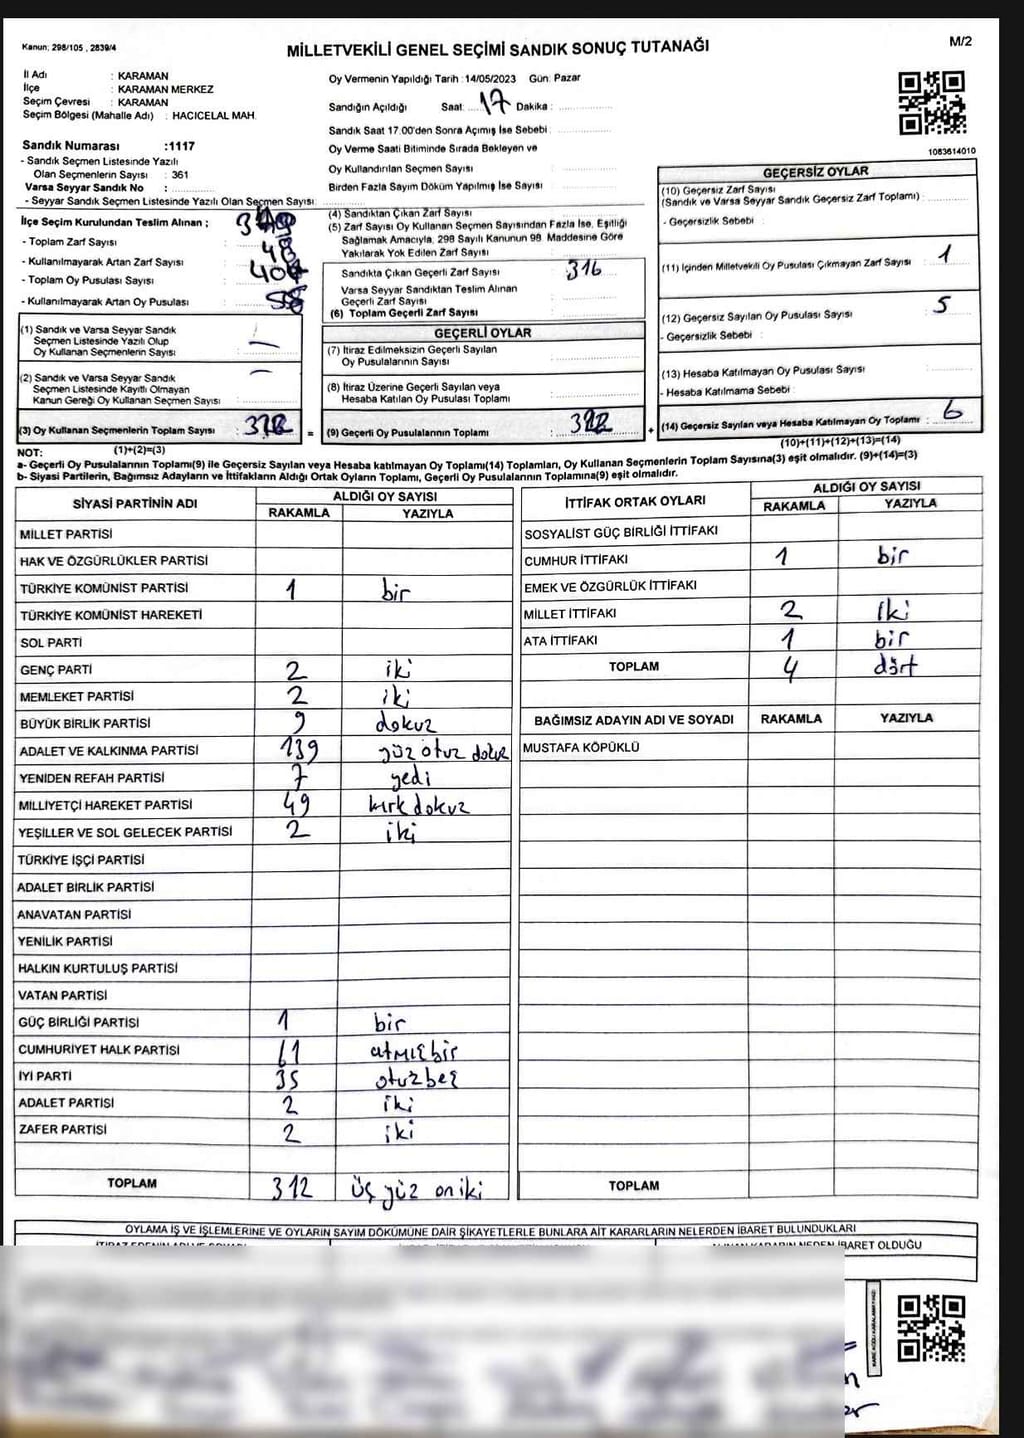 Kanun: 298/105 , 2839/4
MİLLETVEKİLİ GENEL SEÇİMİ SANDIK SONUÇ TUTANAĞI
M/2
İl Adı : KARAMAN
İlçe : KARAMAN MERKEZ
Seçim Çevresi : KARAMAN
Seçim Bölgesi (Mahalle Adı) : HACICELAL MAH.
Sandık Numarası :1117
- Sandık Seçmen Listesinde Yazılı
Olan Seçmenlerin Sayısı : 361
Varsa Seyyar Sandık No :
- Seyyar Sandık Seçmen Listesinde Yazılı Olan Seçmen Sayısı:
Oy Vermenin Yapıldığı Tarih :14/05/2023 Gün: Pazar
Sandığın Açıldığı Saat: 17 Dakika :
Sandık Saat 17.00'den Sonra Açımış İse Sebebi :
Oy Verme Saati Bitiminde Sırada Bekleyen ve
Oy Kullandırılan Seçmen Sayısı :
Birden Fazla Sayım Döküm Yapılmış İse Sayısı :
1083614010
İlçe Seçim Kurulundan Teslim Alınan ;
- Toplam Zarf Sayısı :
- Kullanılmayarak Artan Zarf Sayısı : 48
- Toplam Oy Pusulası Sayısı :
- Kullanılmayarak Artan Oy Pusulası :
(1) Sandık ve Varsa Seyyar Sandık
Seçmen Listesinde Yazılı Olup
Oy Kullanan Seçmenlerin Sayısı :
(2) Sandık ve Varsa Seyyar Sandık
Seçmen Listesinde Kayıtlı Olmayan
Kanun Gereği Oy Kullanan Seçmen Sayısı :
(3) Oy Kullanan Seçmenlerin Toplam Sayısı :
(4) Sandıktan Çıkan Zarf Sayısı
(5) Zarf Sayısı Oy Kullanan Seçmen Sayısından Fazla İse, Eşitliği
Sağlamak Amacıyla, 298 Sayılı Kanunun 98. Maddesine Göre
Yakılarak Yok Edilen Zarf Sayısı :
Sandıkta Çıkan Geçerli Zarf Sayısı : 316
Varsa Seyyar Sandıktan Teslim Alınan
Geçerli Zarf Sayısı :
(6) Toplam Geçerli Zarf Sayısı :
GEÇERLİ OYLAR
(7) İtiraz Edilmeksizin Geçerli Sayılan
Oy Pusulalarının Sayısı :
(8) İtiraz Üzerine Geçerli Sayılan veya
Hesaba Katılan Oy Pusulası Toplamı :
= (9) Geçerli Oy Pusulalarının Toplamı :
GEÇERSİZ OYLAR
(10) Geçersiz Zarf Sayısı
(Sandık ve Varsa Seyyar Sandık Geçersiz Zarf Toplamı) :
- Geçersizlik Sebebi :
(11) İçinden Milletvekili Oy Pusulası Çıkmayan Zarf Sayısı : 1
(12) Geçersiz Sayılan Oy Pusulası Sayısı : 5
- Geçersizlik Sebebi :
(13) Hesaba Katılmayan Oy Pusulası Sayısı :
- Hesaba Katılmama Sebebi :
+ (14) Geçersiz Sayılan veya Hesaba Katılmayan Oy Toplamı : 6
NOT: (1)+(2)=(3)
(10)+(11)+(12)+(13)=(14)
a- Geçerli Oy Pusulalarının Toplamı(9) ile Geçersiz Sayılan veya Hesaba katılmayan Oy Toplamı(14) Toplamları, Oy Kullanan Seçmenlerin Toplam Sayısına(3) eşit olmalıdır. (9)+(14)=(3)
b- Siyasi Partilerin, Bağımsız Adayların ve İttifakların Aldığı Ortak Oyların Toplamı, Geçerli Oy Pusulalarının Toplamına(9) eşit olmalıdır.
SİYASİ PARTİNİN ADI ALDIĞI OY SAYISI
RAKAMLA YAZIYLA
MİLLET PARTİSİ
HAK VE ÖZGÜRLÜKLER PARTİSİ
TÜRKİYE KOMÜNİST PARTİSİ 1 bir
TÜRKİYE KOMÜNİST HAREKETİ
SOL PARTİ
GENÇ PARTİ 2 iki
MEMLEKET PARTİSİ 2 iki
BÜYÜK BİRLİK PARTİSİ 9 dokuz
ADALET VE KALKINMA PARTİSİ 139 yüz otuz dokuz
YENİDEN REFAH PARTİSİ 7 yedi
MİLLİYETÇİ HAREKET PARTİSİ 49 kırk dokuz
YEŞİLLER VE SOL GELECEK PARTİSİ 2 iki
TÜRKİYE İŞÇİ PARTİSİ
ADALET BİRLİK PARTİSİ
ANAVATAN PARTİSİ
YENİLİK PARTİSİ
HALKIN KURTULUŞ PARTİSİ
VATAN PARTİSİ
GÜÇ BİRLİĞİ PARTİSİ 1 bir
CUMHURİYET HALK PARTİSİ 61 atmışbir
İYİ PARTİ 35 otuzbeş
ADALET PARTİSİ 2 iki
ZAFER PARTİSİ 2 iki
TOPLAM 312 üç yüz on iki
İTTİFAK ORTAK OYLARI ALDIĞI OY SAYISI
RAKAMLA YAZIYLA
SOSYALİST GÜÇ BİRLİĞİ İTTİFAKI
CUMHUR İTTİFAKI 1 bir
EMEK VE ÖZGÜRLÜK İTTİFAKI
MİLLET İTTİFAKI 2 iki
ATA İTTİFAKI 1 bir
TOPLAM 4 dört
BAĞIMSIZ ADAYIN ADI VE SOYADI RAKAMLA YAZIYLA
MUSTAFA KÖPÜKLÜ
TOPLAM
OYLAMA İŞ VE İŞLEMLERİNE VE OYLARIN SAYIM DÖKÜMÜNE DAİR ŞİKAYETLERLE BUNLARA AİT KARARLARIN NELERDEN İBARET BULUNDUKLARI
İBARET OLDUĞU